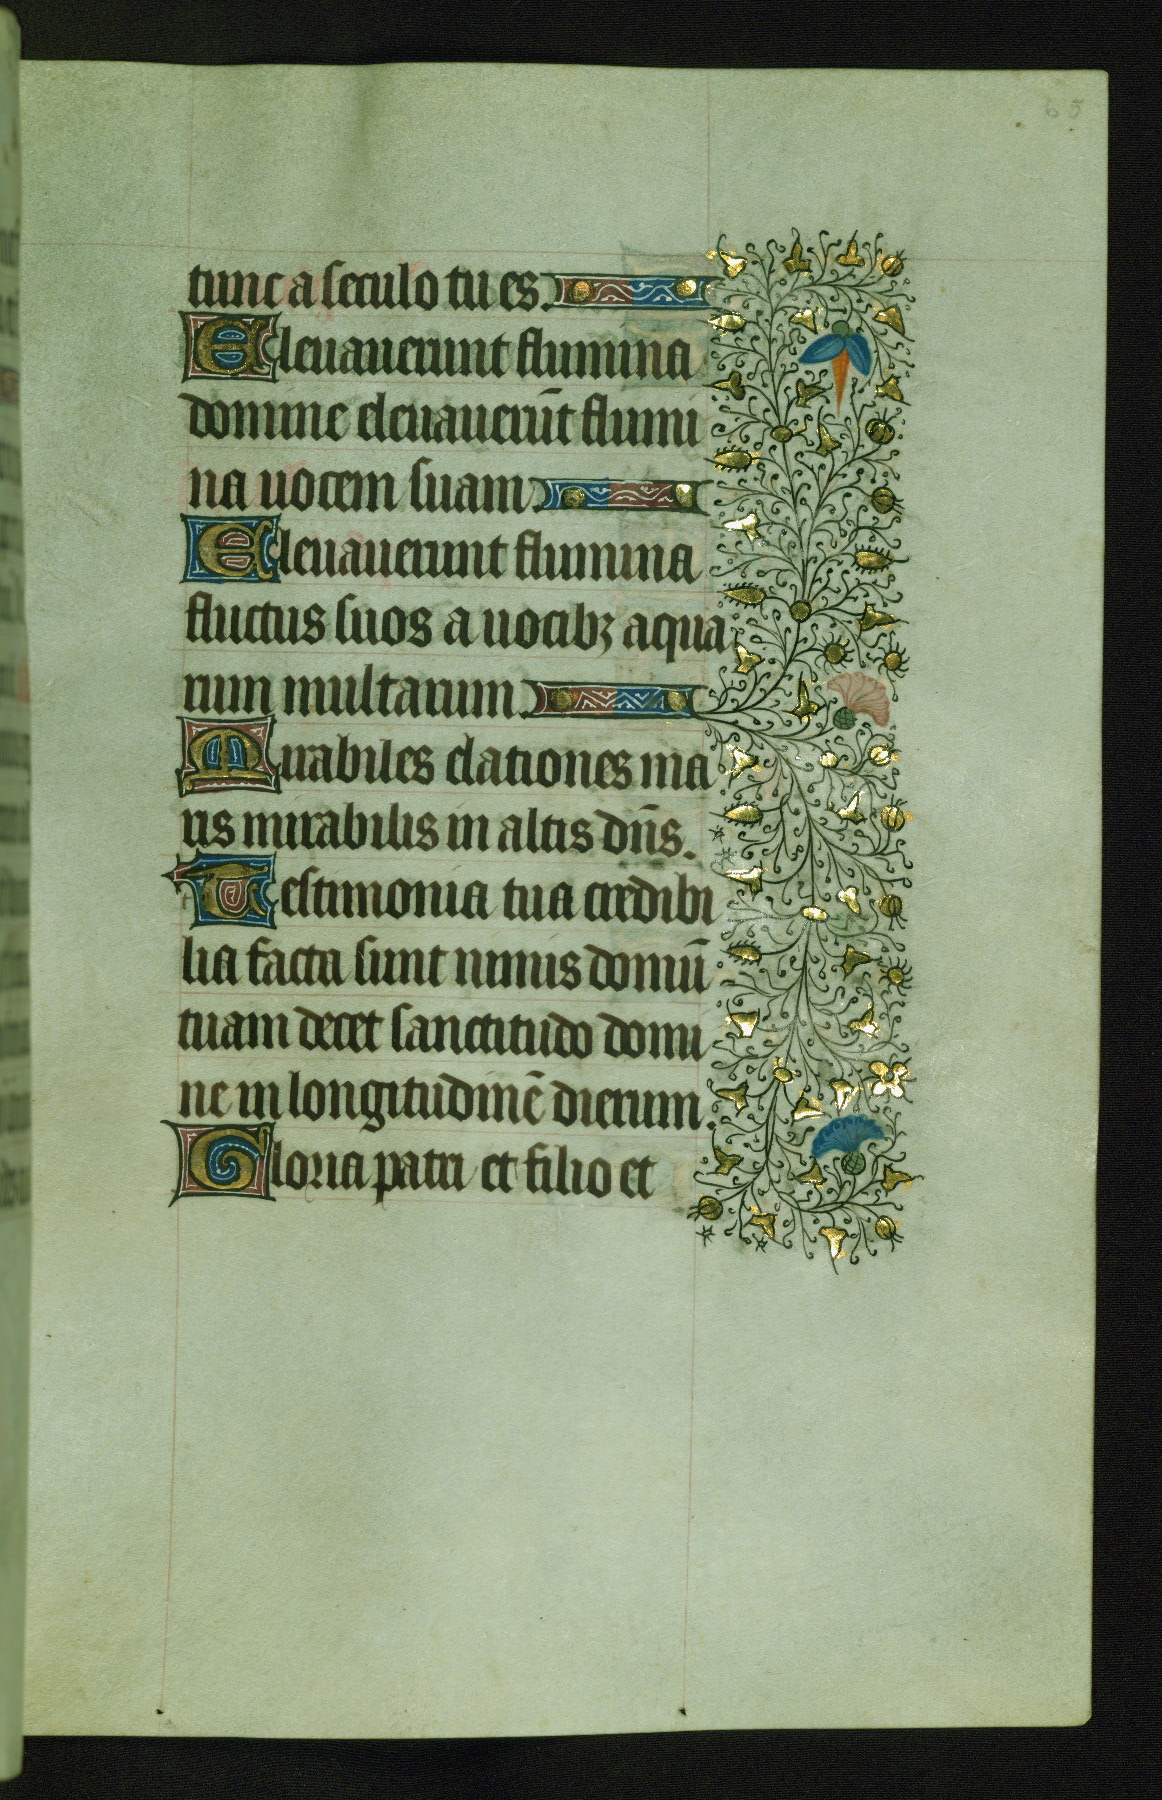 65
tunc a seculo tu es.
Eleuauerunt flumina
domine eleuauerūt flumi
na uocem suam.
Eleuauerunt flumina
fluctus suos a uocibꝫ aqua
rum multarum.
Mirabiles elationes ma
ris mirabilis in altis dn̄s.
Testimonia tua credibi
lia facta sunt nimis domū
tuam decet sanctitudo domi
ne in longitudinē dierum.
Gloria patri et filio et